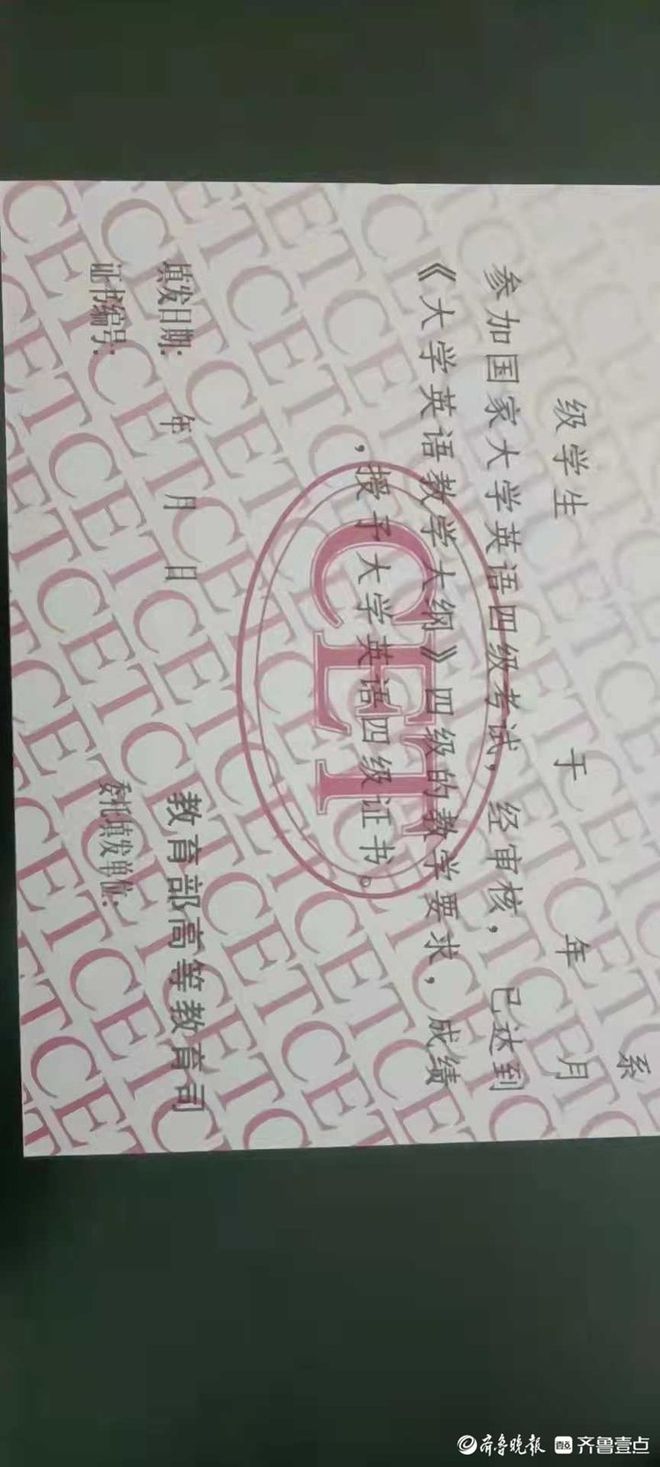 系
级学生 于 年 月
参加国家大学英语四级考试，经审核，已达到
《大学英语教学大纲》四级的教学要求，成绩
，授予大学英语四级证书。
CET
教育部高等教育司
填发日期： 年 月 日
委托填发单位：
证书编号：
CETCETCETCET
齐鲁晚报 齐鲁壹点